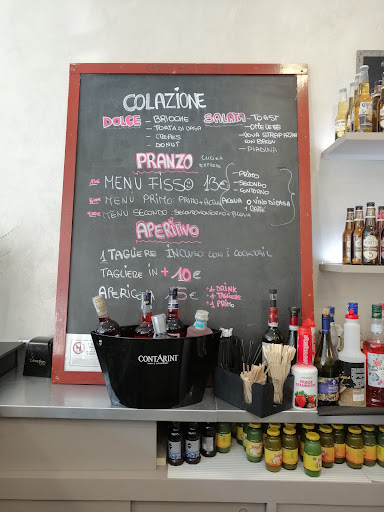 COLAZIONE
DOLCE - BRIOCHE
- TORTA DI CASA
- CREPES
- DONUT
SALATA - TOAST
- OMELETTE
- UOVA STRAPAZZATE
CON BACON
- PIADINA
PRANZO CUCINA ESPRESSA
MENU FISSO 13€
- PRIMO
- SECONDO
- CONTORNO
ACQUA O VINO DI CASA
+ CAFFE
MENU PRIMO PRIMO + ACQUA
MENU SECONDO SECONDO + CONTORNO + ACQUA
APERITIVO
1 TAGLIERE INCLUSO CON I COCKTAIL
TAGLIERE IN + 10€
APERICENA 15€
• 1 DRINK
• 1 TAGLIERE
• 1 PRIMO
CONTARINI